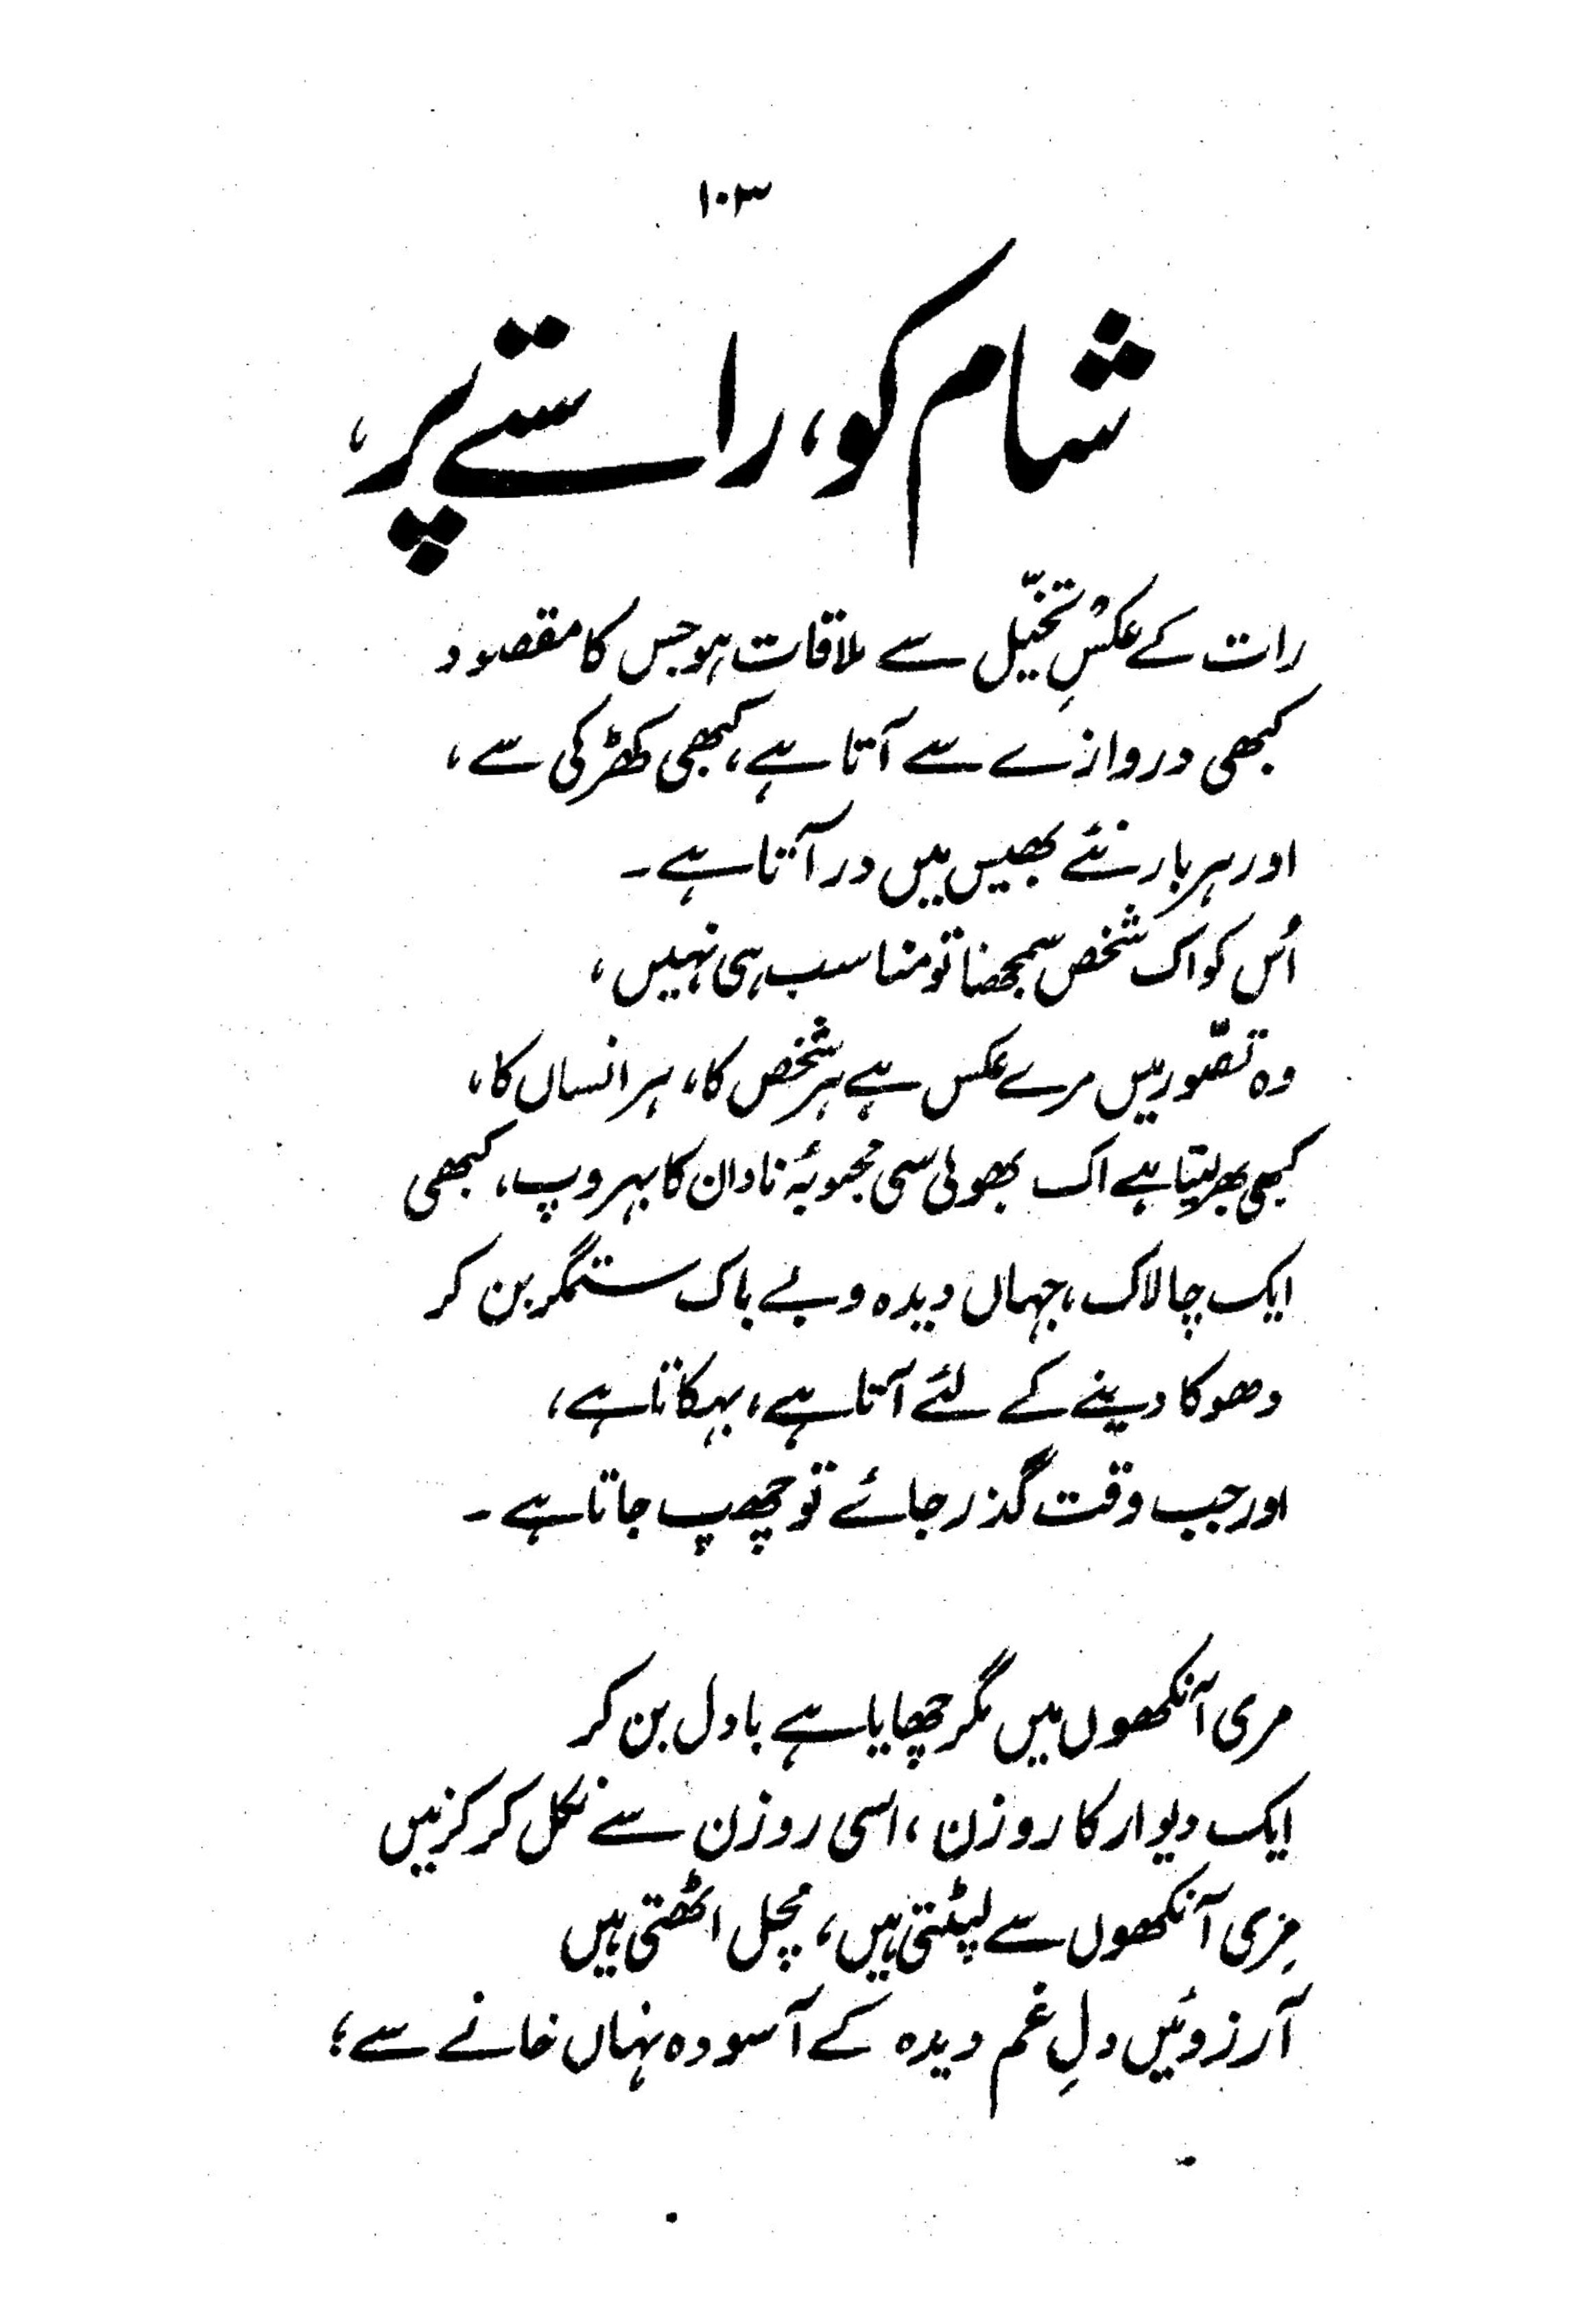 ۱۰۳
شام کو، راستے پر،
رات کے عکسِ تخیّل سے ملاقات ہو جس کا مقصود
کبھی دروازے سے آتا ہے، کبھی کھڑکی سے،
اور ہر بار نئے بھیس میں در آتا ہے۔
اُس کو اک شخص سمجھنا تو مناسب ہی نہیں،
وہ تصّور میں مرے عکس ہے ہر شخص کا، ہر انساں کا،
کبھی بھر لیتا ہے اک بھولی سی محبوبۂ نادان کا بہروپ، کبھی
ایک چالاک، جہاں دیدہ و بے باک ستمگر بن کر
دھوکا دینے کے لئے آتا ہے، بہکاتا ہے،
اور جب وقت گذر جائے تو چھپ جاتا ہے۔
مری آنکھوں میں مگر چھایا ہے بادل بن کر
ایک دیوار کا روزن، اسی روزن سے نکل کر کرنیں
مِری آنکھوں سے لپٹتی ہیں، مچل اٹھتی ہیں
آرزوئیں دلِ غم دیدہ کے آسودہ نہاں خانے سے؛